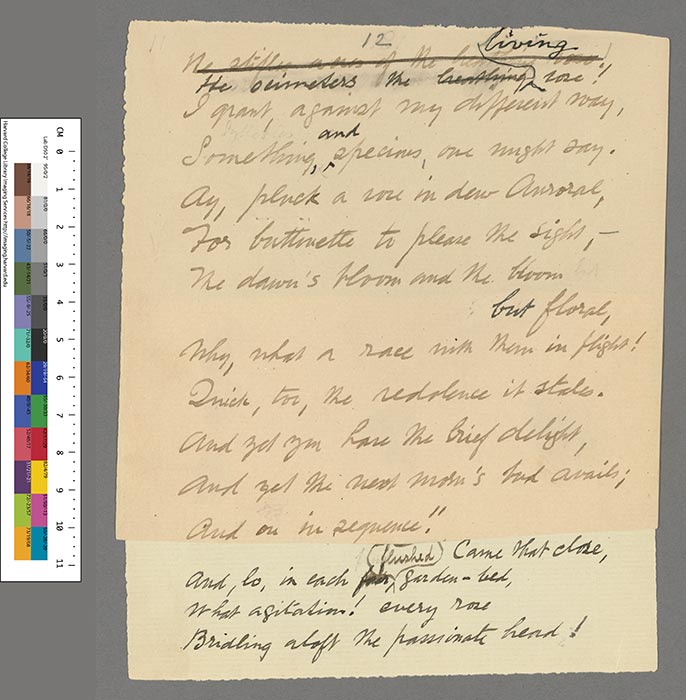 12
living
He scimeters the breathing rose!
I grant, against my different way,
and
Something, specious, one might say.
Ay, pluck a rose in dew Auroral,
For buttinette to please the sight,—
The dawn's bloom and the bloom
but floral,
Why, what a race with them in flight!
Quick, too, the redolence it stales.
And yet you have the brief delight,
And yet the next morn's bud avails;
And on in sequence!!
flushed Came that close,
And, lo, in each garden-bed,
What agitation! every rose
Bridling aloft the passionate head!
CM 0 1 2 3 4 5 6 7 8 9 10 11
Harvard College Library Imaging Services